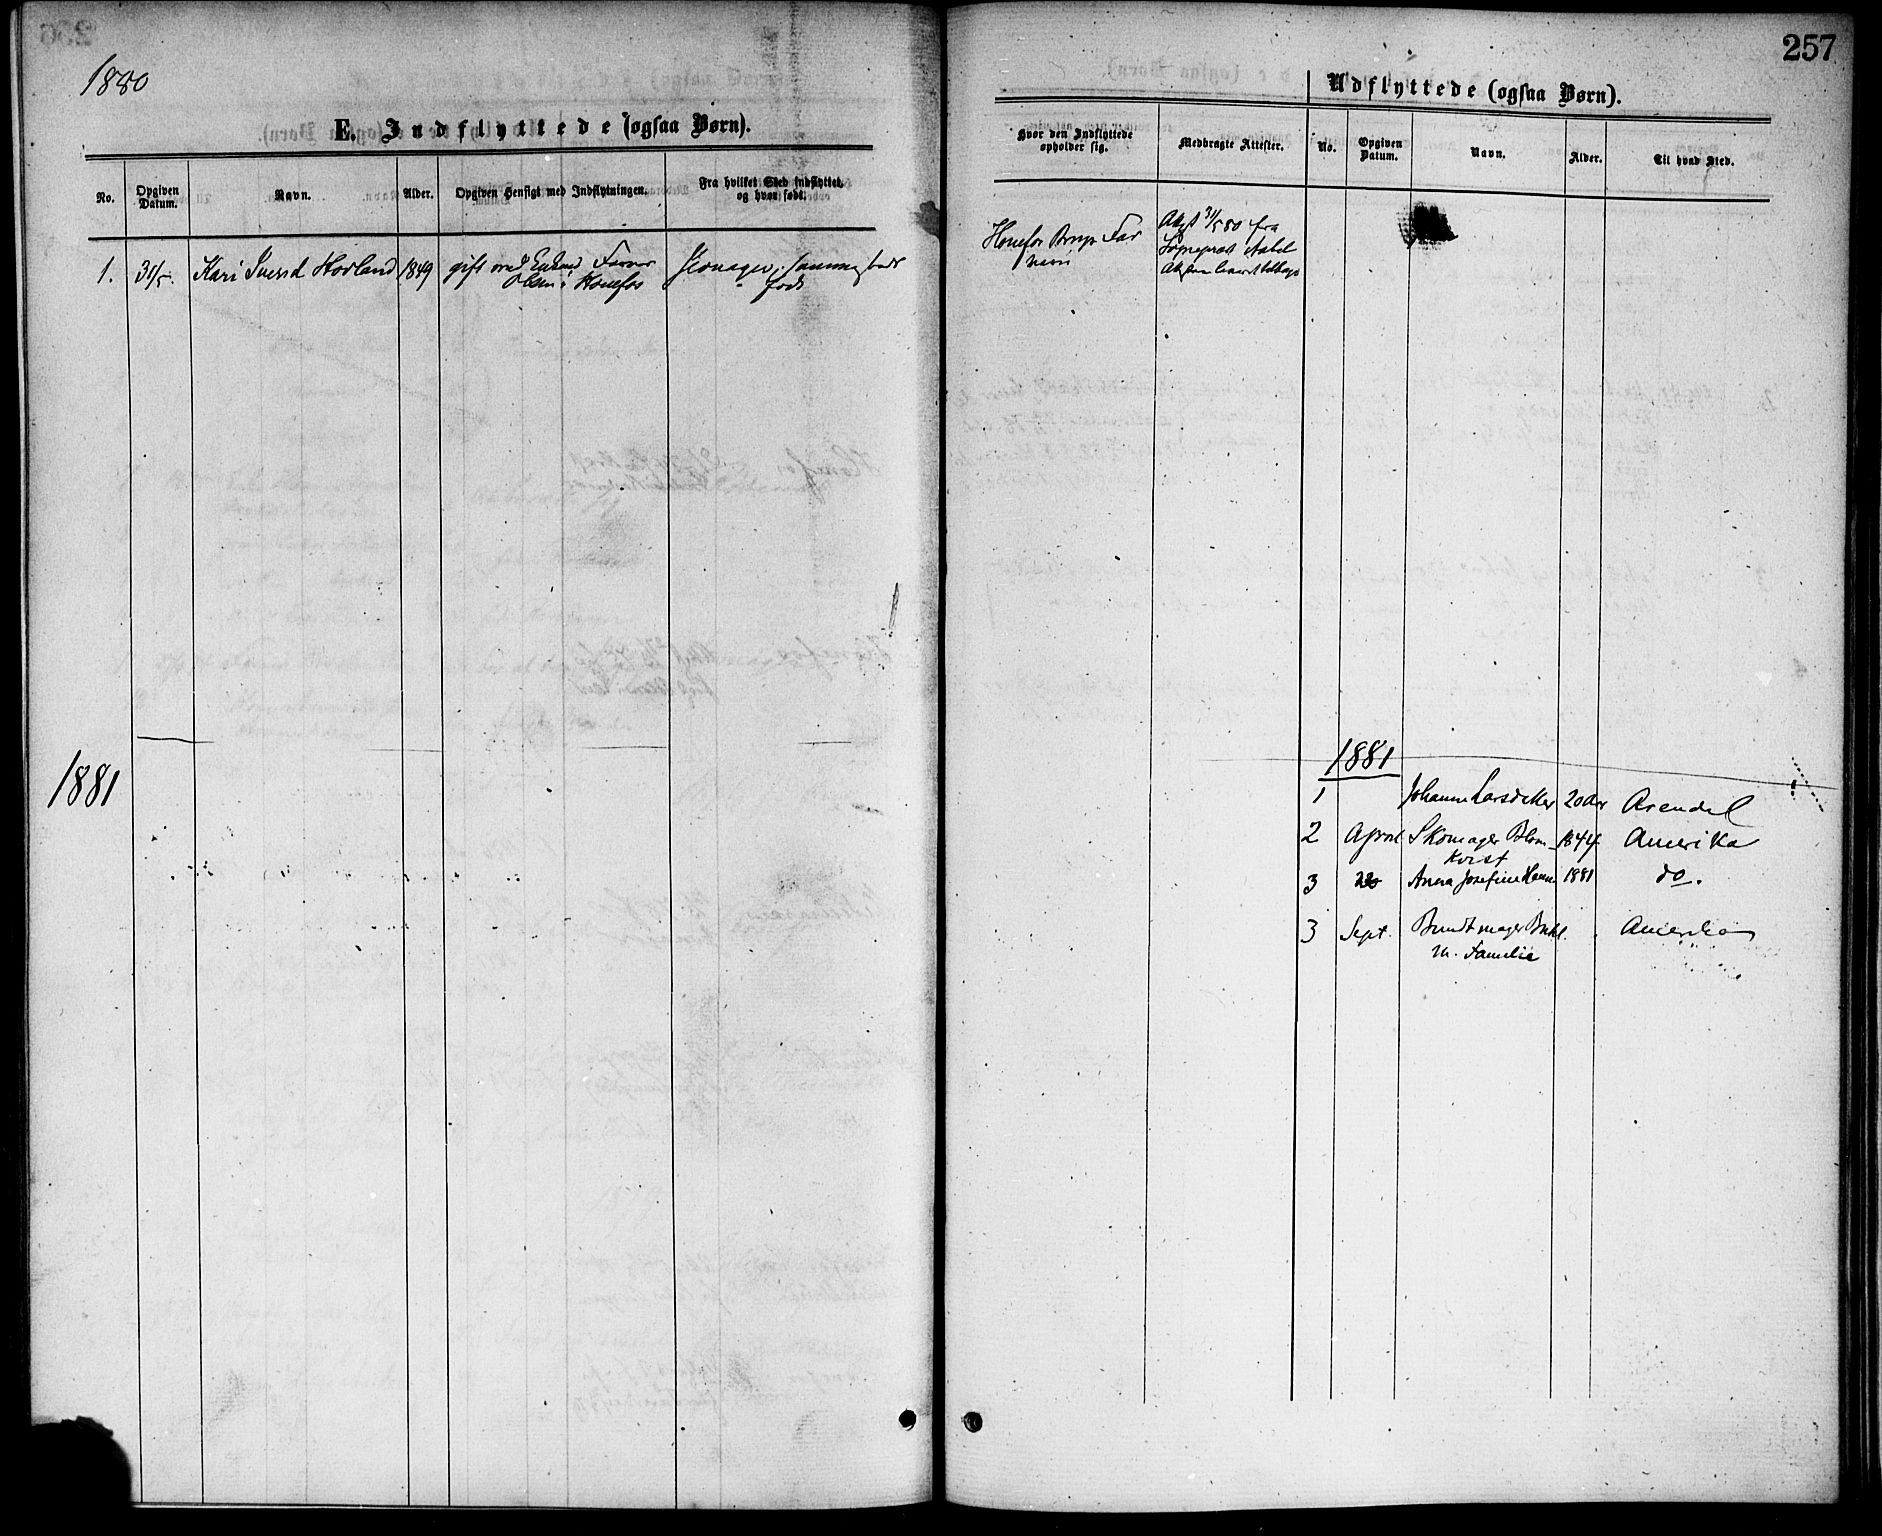 257
1880
E. Indflyttede (ogsaa Børn).
No.
Opgiven Datum.
Navn.
Alder.
Opgiven Hensigt med Indflytningen.
Fra hvilket Sted indflyttet,
og hvor født.
1.
31/5.
Kari Svensd Hovland
1849
gift med
Olsen i Hønefos
født
1881
Udflyttede (ogsaa Børn).
Hvor den Indflyttede
opholder sig.
Medbragte Attester.
No.
Opgiven
Datum.
Navn.
Alder.
Til hvad Sted.
Hønefos
31/5 80 fra
Sognepræst Aabel
1881
1
Johanne Larsdatter
20 Aar
Arendal
2
April
Skomager Blom-
kvist
1844
Amerika
3
Anna Josefine
1881
do.
3
Sept.
Bundtmager
m. Familie
Amerika